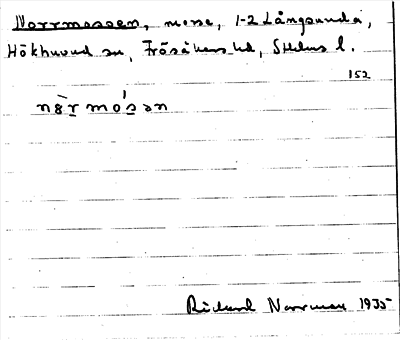 Norrmossen, mosse, 1-2 Långsunda,
Hökhuvud sn, Frösåkers hd, Sthlms l.
152
nȍr mósən
Rickard Norrman 1935